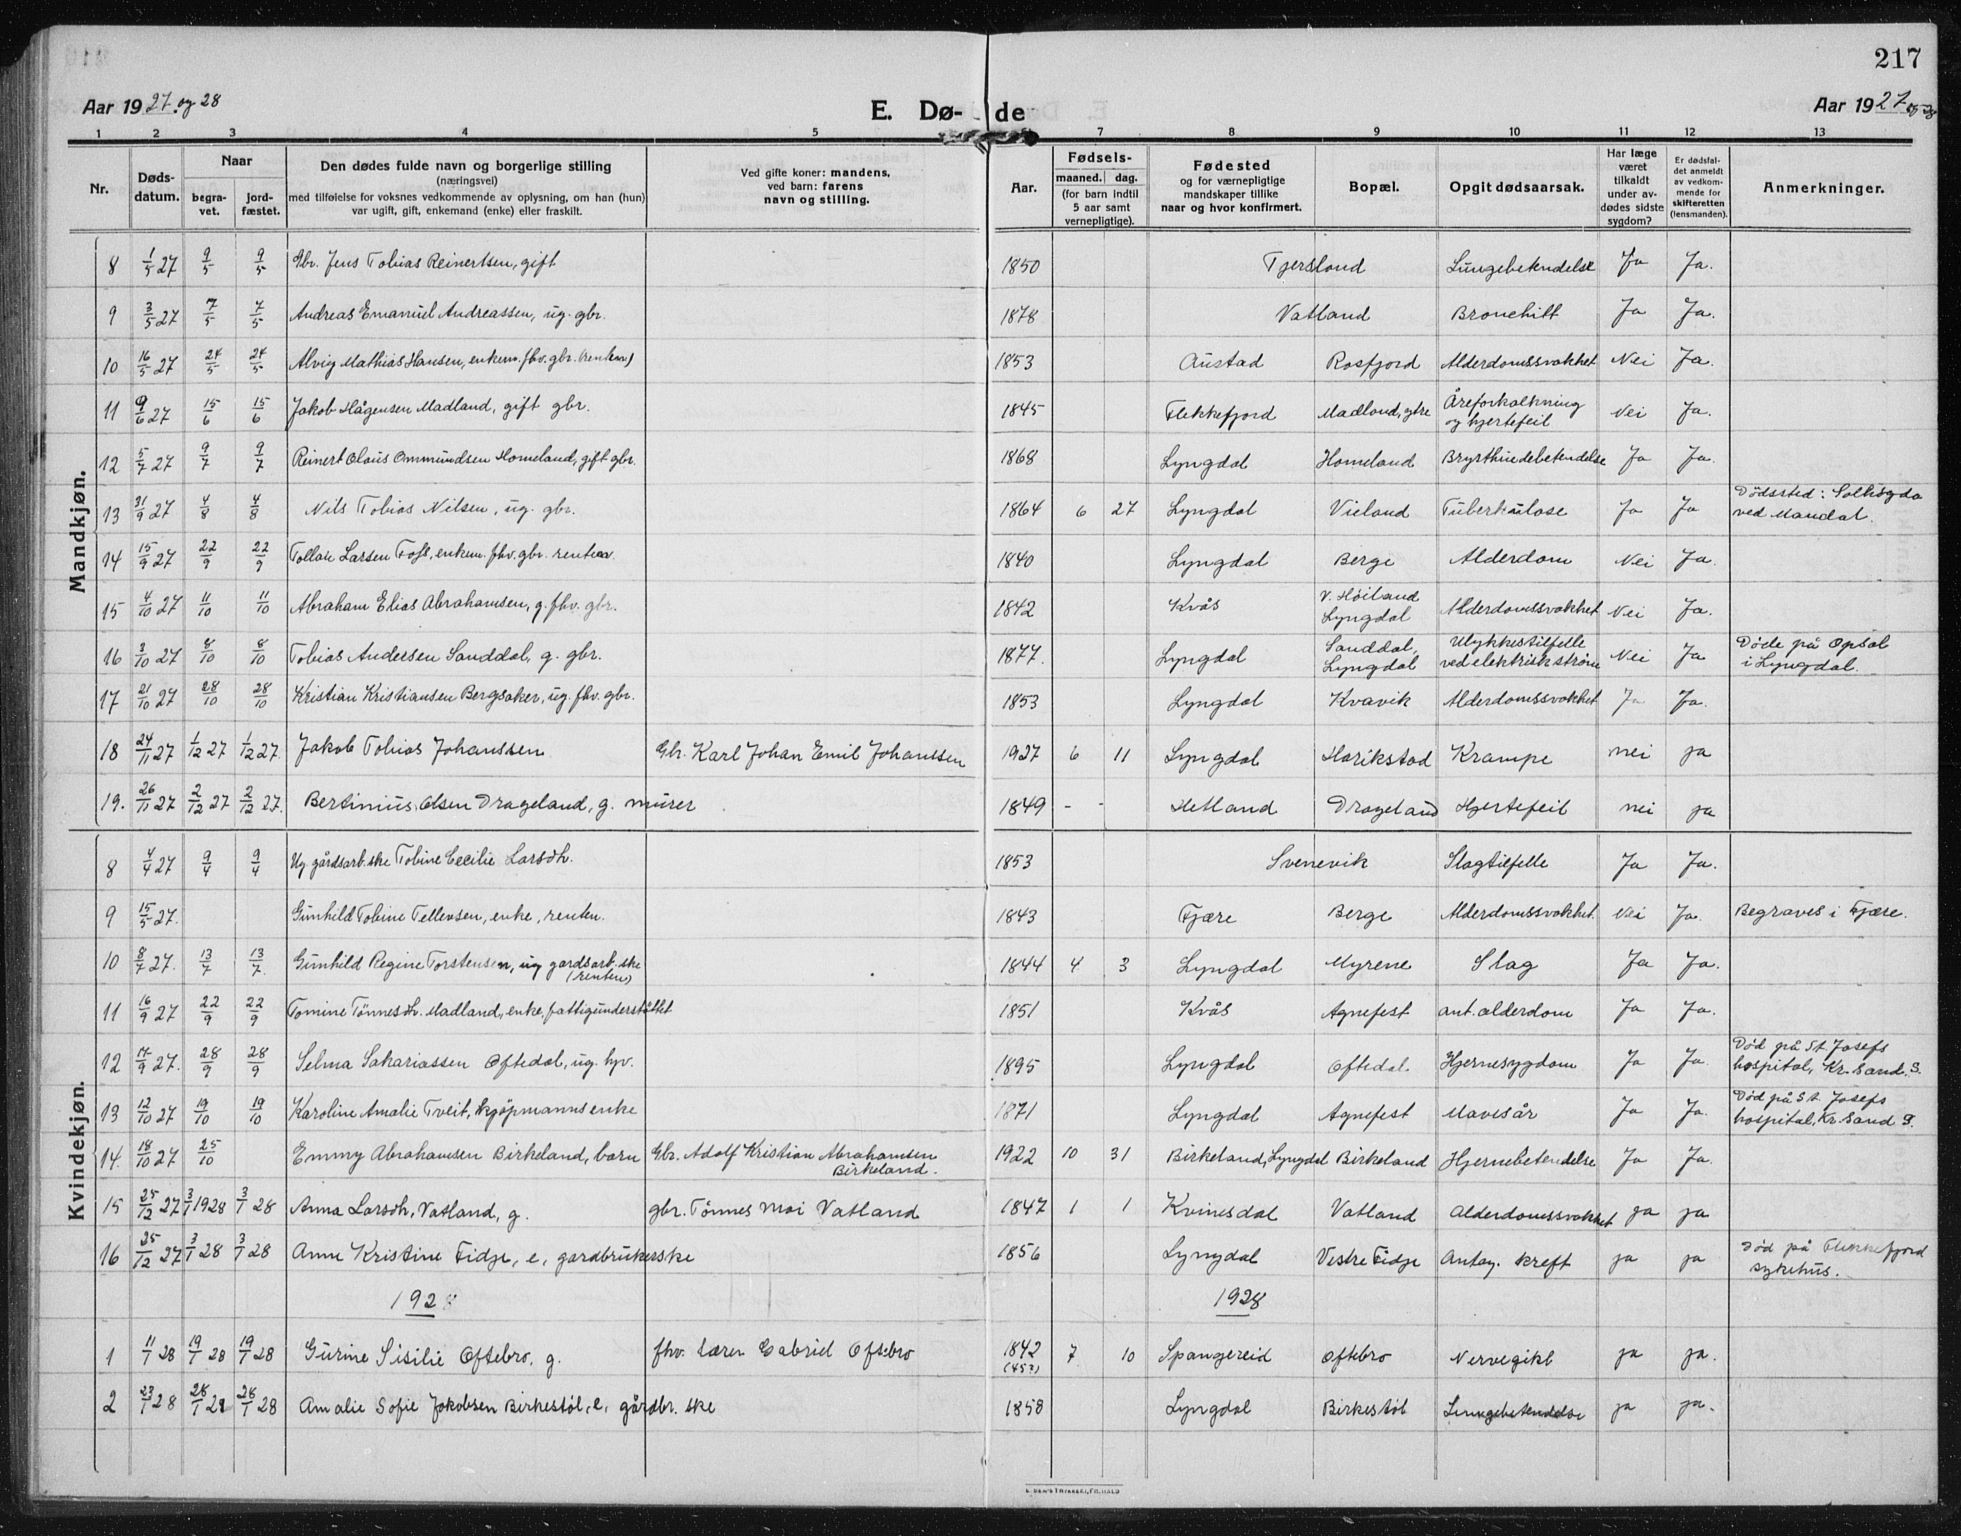 217
Aar 1927 og 28
E. Dø- de
Aar 1927 og 28
1 2 3 4 5 7 8 9 10 11 12 13
Nr.
Døds-
datum.
Naar
begra-
vet.
jord-
fæstet.
Den dødes fulde navn og borgerlige stilling
(næringsvei)
med tilføielse for voksnes vedkommende av oplysning, om han (hun)
var ugift, gift, enkemand (enke) eller fraskilt.
Ved gifte koner: mandens,
ved barn: farens
navn og stilling.
Aar.
Fødsels-
maaned. dag.
(for barn indtil
5 aar samt
vernepligtige).
Fødested
og for værnepligtige
mandskaper tillike
naar og hvor konfirmert.
Bopæl.
Opgit dødsaarsak.
Har læge
været
tilkaldt
under av-
dødes sidste
sygdom?
Er dødsfal-
det anmeldt
av vedkom-
mende for
skifteretten
(lensmanden).
Anmerkninger.
Mandkjøn.
8 1/5 27 9/5 9/5 Gbr. Jens Tobias Reinertsen, gift 1850 Tjersland Lungebetendelse Ja Ja.
9 3/5 27 7/5 7/5 Andreas Emanuel Andreassen, ug. gbr. 1878 Vatland Bronchitt Ja Ja.
10 16/5 27 24/5 24/5 Alvig Mathias Hansen, enkem. fhv. gbr. (renten) 1853 Austad Rosfjord Alderdomssvakhet Nei Ja.
11 9/6 27 15/6 15/6 Jakob Hågensen Madland, gift gbr. 1845 Flekkefjord Madland, ytre Åreforkalkning
og hjertefeil Nei Ja.
12 5/7 27 9/7 9/7 Reinert Olaus Ommundsen Homeland, gift gbr. 1868 Lyngdal Homeland Brysthindebetendelse Ja Ja.
13 31/9 27 4/8 4/8 Nils Tobias Nilsen, ug. gbr. 1864 6 27 Lyngdal Vieland Tuberkulose Ja Ja Dødssted:
ved Mandal.
14 15/9 27 22/9 22/9 Tollak Larsen Foss, enkem. fhv. gbr. renten. 1840 Lyngdal Berge Alderdom Nei Ja.
15 4/10 27 11/10 11/10 Abraham Elias Abrahamsen, g. fhv. gbr. 1842 Kvås V. Høiland
Lyngdal Alderdomssvakhet Nei Ja.
16 3/10 27 8/10 8/10 Tobias Andersen Sanddal, g. gbr. 1877. Lyngdal Sanddal,
Lyngdal Ulykkestilfelle
ved elektrisk strøm Nei Ja Døde på Opsal
i Lyngdal.
17 21/10 27 28/10 28/10 Kristian Kristiansen Bergsaker, ug. fhv. gbr. 1853 Lyngdal Kvavik Alderdomssvakhet Ja Ja.
18 24/11 27 1/12 27 1/12 27. Jakob Tobias Johanssen Gbr. Karl Johan Emil Johanssen 1927 6 11 Lyngdal Harikstad Krampe nei ja
19. 26/11 27 2/12 27 2/12 27. Bertinius Olsen Drageland, g. murer 1849 - - Hetland Drageland Hjertefeil nei ja
Kvindekjøn.
8 4/4 27 9/4 9/4 Ug. gårdsarb.ske Tobine Cecilie Larsdh. 1853 Svenevik Slagtilfelle Ja Ja.
9 15/5 27. Gunhild Tobine Tellevsen, enke, renten. 1843 Fjære Berge Alderdomssvakhet. Nei Ja. Begraves i Fjære.
10 8/7 27. 13/7 13/7. Gunhild Regine Torstensen, ug gardsarb.ske
(renten) 1844 4 3 Lyngdal Myrene Slag Ja Ja.
11 16/9 27 22/9 22/9 Tomine Tønnesdh. Madland, enke, fattigunderstøttet 1851 Kvås Agnefest ant. alderdom Ja Ja.
12 /9 27. 28/9 28/9 Selma Sakariassen Oftedal, ug. hjv. 1895 Lyngdal Oftedal Hjernesygdom Ja Ja. Død på St. Josefs
hospital, Kr.sand. S.
13 12/10 27 19/10 19/10 Karoline Amalie Tveit, kjøpmannsenke 1871 Lyngdal Agnefest Mavesår Ja Ja. Død på St. Josefs
hospital, Kr.sand S.
14. 18/10 27 25/10 Emmy Abrahamsen Birkeland, barn Gbr. Adolf Kristian Abrahamsen
Birkeland. 1922 10 31 Birkeland, Lyngdal Birkeland Hjernebetendelse Ja Ja.
15 25/12 27 3/1 1928 3/1 28 Anna Larsdh, Vatland, g. gbr. Tønnes Moi Vatland 1847 1 1 Kvinesdal Vatland Alderdomssvakhet ja ja
16 25/12 27 3/1 28 3/1 28 Anne Kristine Fidje, e, gardbrukerske 1856 Lyngdal Vestre Fidje Antag. kreft ja ja Død på Flekkefjord
sykehus.
1928 1928
1 11/1 28 19/1 28 19/1 28 Gurine Sisilie Oftebro, g. fhv. lærer Gabriel Oftebro 1842
(45?) 7 10 Spangereid Oftebro Nervegikt ja ja.
2 23/1 28 28/1 28 28/1 28 Amalie Sofie Jakobsen Birkestøl, e, gårdbr.ske 1858 Lyngdal Birkestøl Lungebetendelse ja ja.